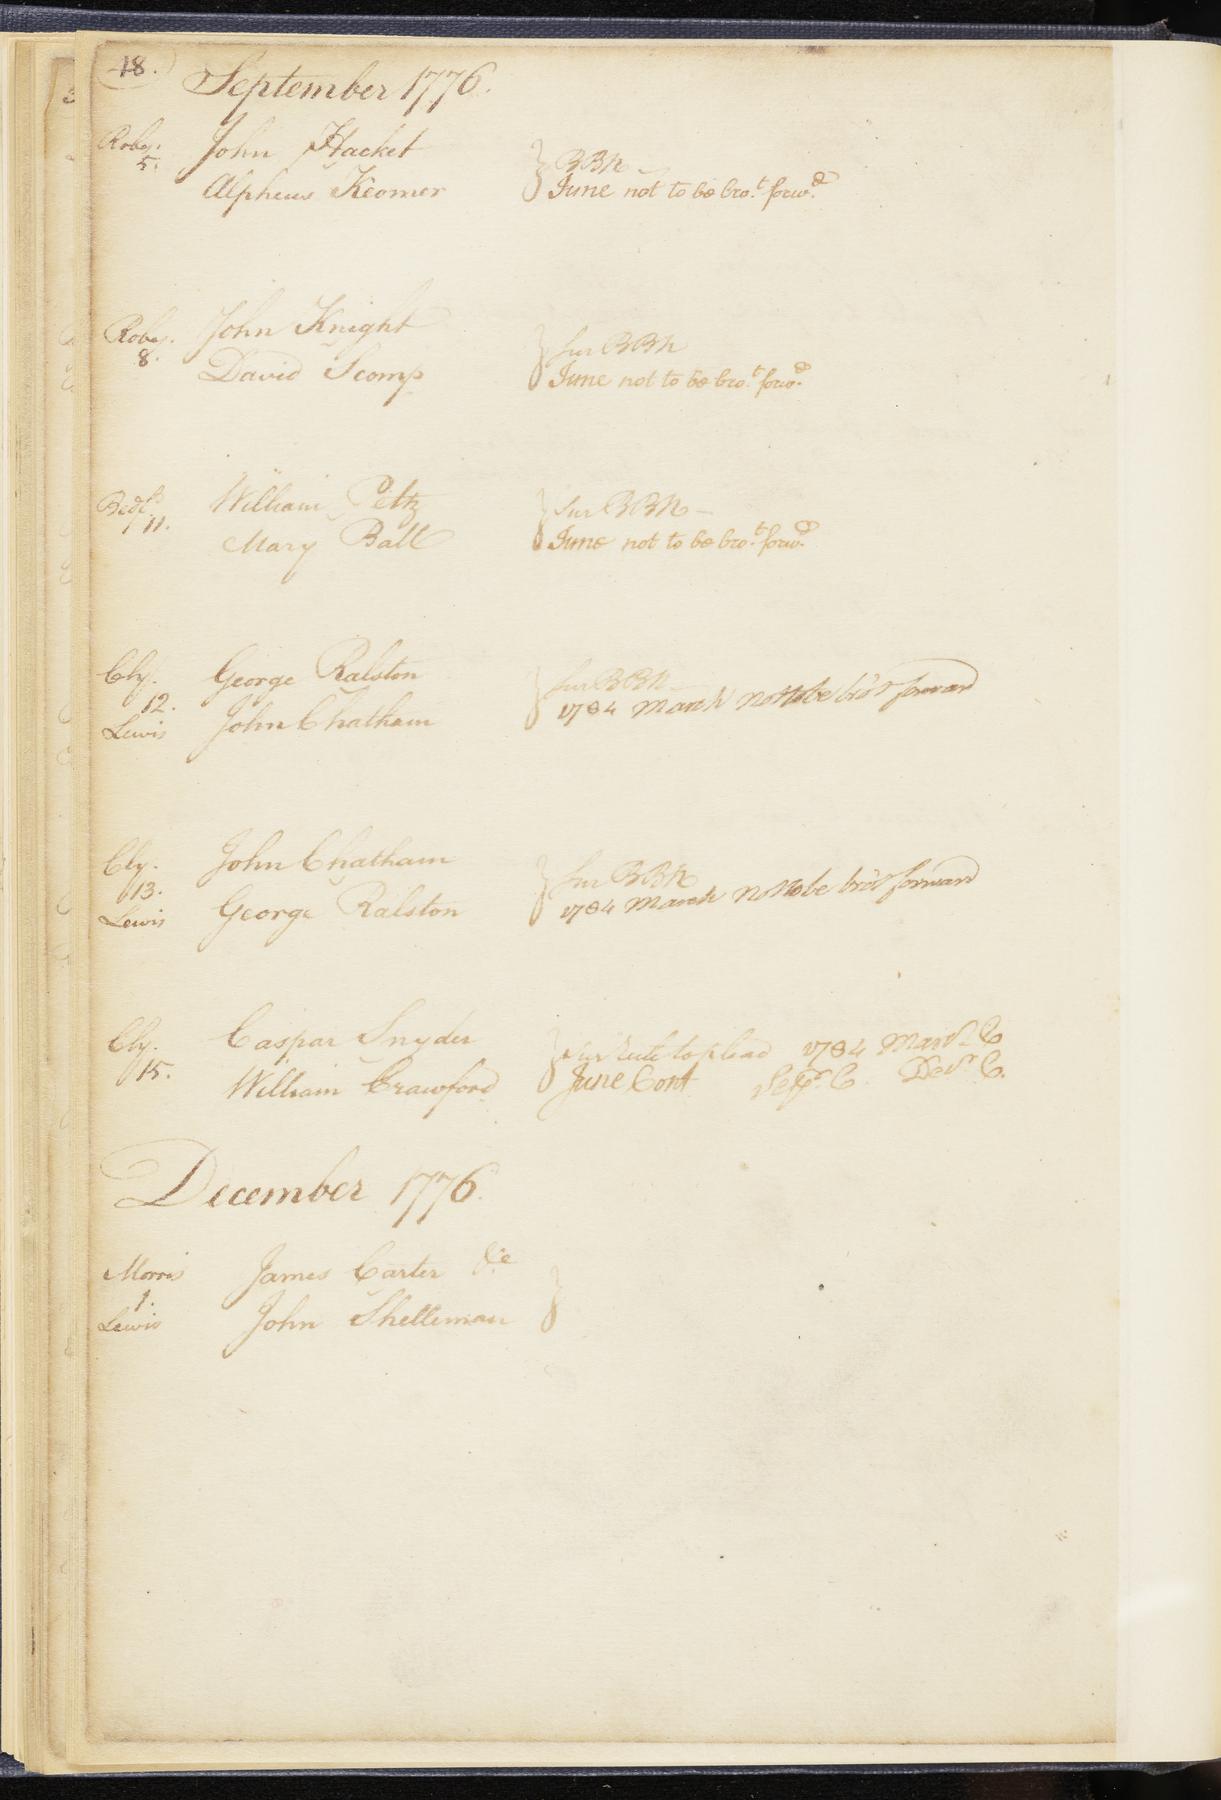 18.
September 1776.
Robes. John Hacket } BBR
5. Alpheus Keomer June not to be bro.t forw.d
Robes. John Knight } Sur BBR
8. David Scomp June not to be bro.t forw.d
Bedf.d William Peltz } Sur BBR
11. Mary Ball June not to be bro.t forw.d
Cly. George Ralston } Sur BBR
12. 1784 March not to be bro't forward
Lewis John Chatham
Cly. John Chatham } Sur BBR
13. 1784 March not to be bro't forward
Lewis George Ralston
Cly. Caspar Snyder } Sur rule to plead 1784 March C
15. William Crawford June Cont Sept.r C Dec.r C.
December 1776.
Morris James Carter &c }
1.
Lewis John Shelleman